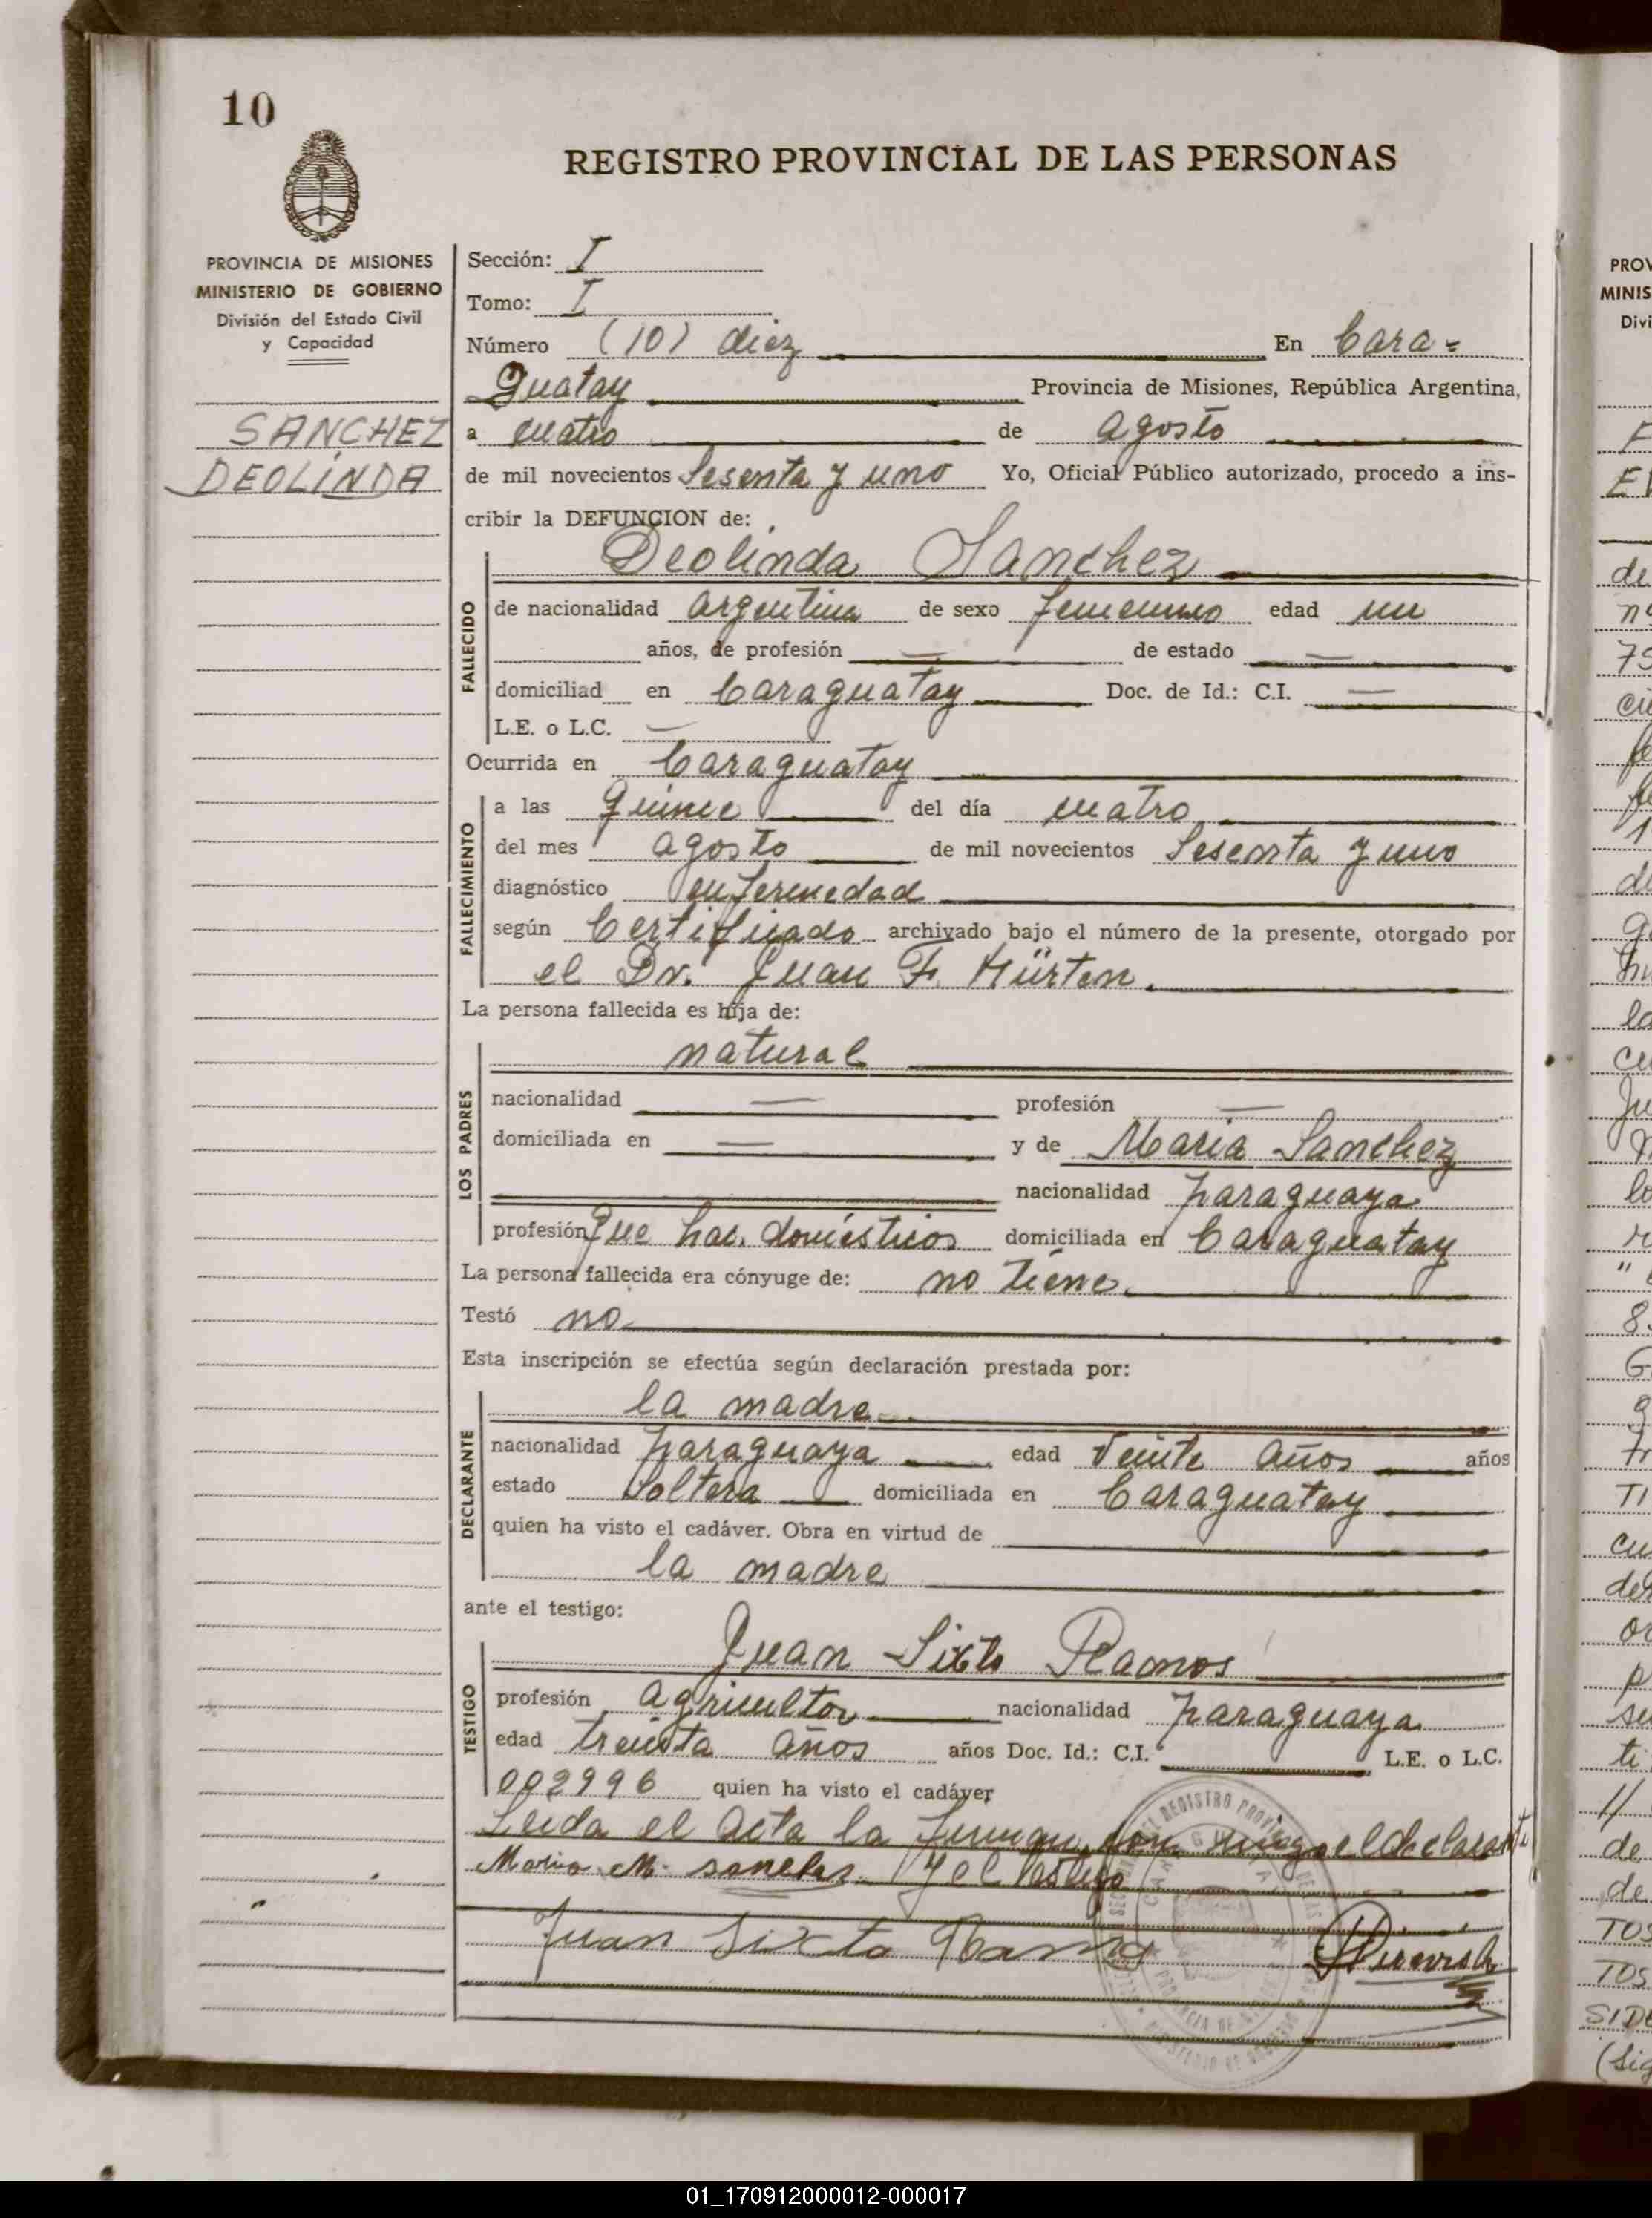 10
REGISTRO PROVINCIAL DE LAS PERSONAS
PROVINCIA DE MISIONES
MINISTERIO DE GOBIERNO
División del Estado Civil
y Capacidad
SANCHEZ
DEOLINDA
Sección: I
Tomo: I
Número (10) diez En Cara=
guatay Provincia de Misiones, República Argentina,
a cuatro de agosto
de mil novecientos Sesenta y uno Yo, Oficial Público autorizado, procedo a ins-
cribir la DEFUNCION de:
Deolinda Sanchez
FALLECIDO
de nacionalidad argentina de sexo femenino edad un
años, de profesión — de estado —
domiciliad en Caraguatay Doc. de Id.: C.I. —
L.E. o L.C. —
Ocurrida en Caraguatay
FALLECIMIENTO
a las quince del día cuatro
del mes agosto de mil novecientos Sesenta y uno
diagnóstico enfermedad
según Certificado archivado bajo el número de la presente, otorgado por
el Dr. Juan F. Hürten.
La persona fallecida es hija de:
LOS PADRES
natural
nacionalidad — profesión —
domiciliada en — y de Maria Sanchez
nacionalidad paraguaya
profesión que hac. domésticos domiciliada en Caraguatay
La persona fallecida era cónyuge de: no tiene.
Testó no
Esta inscripción se efectúa según declaración prestada por:
DECLARANTE
la madre
nacionalidad paraguaya edad veinte años años
estado soltera domiciliada en Caraguatay
quien ha visto el cadáver. Obra en virtud de
la madre
ante el testigo:
TESTIGO
Juan Sixto Ramos
profesión agricultor nacionalidad paraguaya
edad treinta años años Doc. Id.: C.I. L.E. o L.C.
002996 quien ha visto el cadáver
Leida el acta la firman con migo el declarante
Maria M. sanches y el testigo
Juan Sixto Ramos
01_170912000012-000017